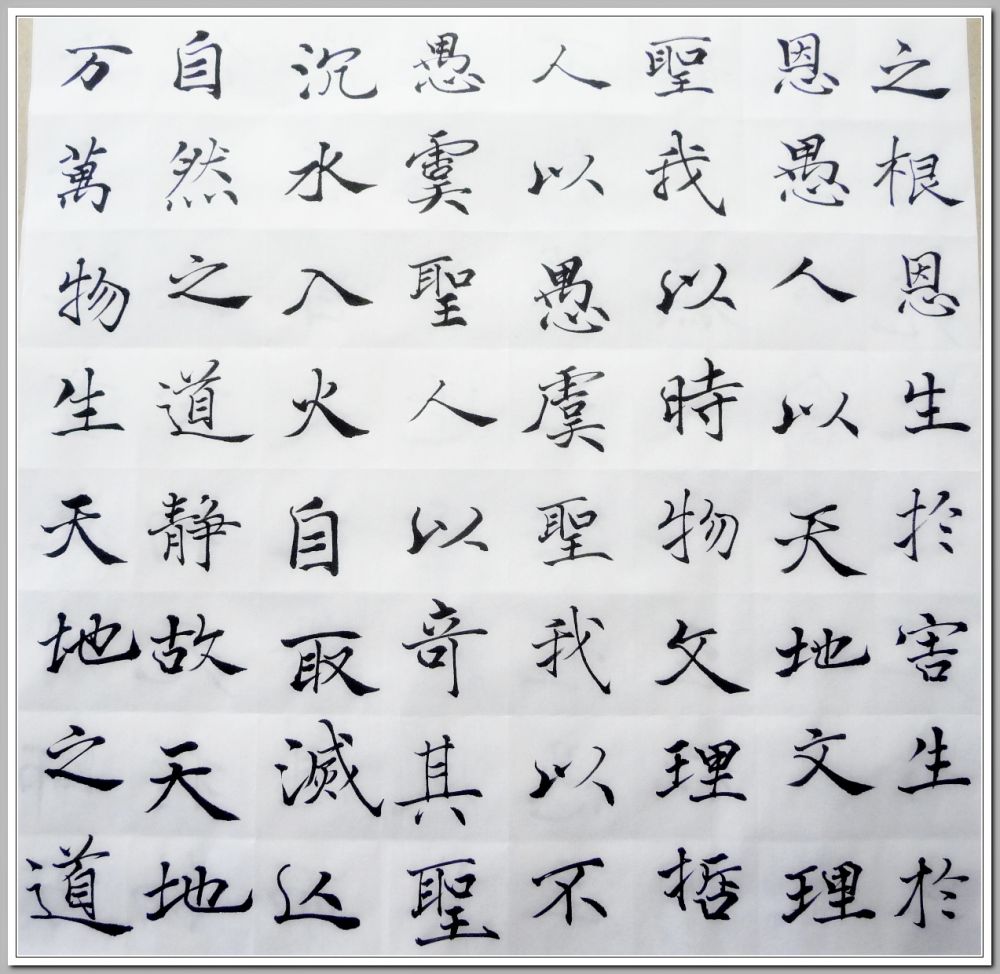 之根恩生於害生於
恩愚人以天地文理
聖我以時物文理哲
人以愚虞聖我以不
愚虞聖人以奇其聖
沉水入火自取滅亾
自然之道静故天地
万萬物生天地之道